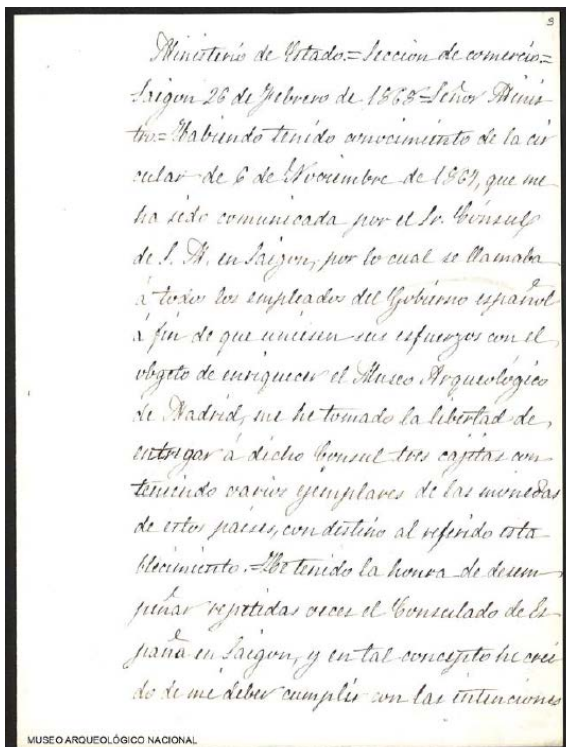 3
Ministerio de Estado.=Seccion de comercio.=
Saigon 26 de Febrero de 1868=Señor Minis
tro.=Habiendo tenido conocimiento de la cir
cular de 6 de Noviembre de 1867, que me
ha sido comunicada por el Sr. Cónsul
de S. M. en Saigon, por lo cual se llamaba
á todos los empleados del Gobierno español
á fin de que uniesen sus esfuerzos con el
obgeto de enriquecer el Museo Arqueológico
de Madrid, me he tomado la libertad de
entregar á dicho Consul tres cajitas con
teniendo varios ejemplares de las monedas
de estos paises, con destino al referido esta
blecimiento.=He tenido la honra de desem
peñar repetidas veces el Consulado de Es
paña en Saigon, y en tal concepto he crei
do de mi deber cumplir con las intenciones
MUSEO ARQUEOLÓGICO NACIONAL